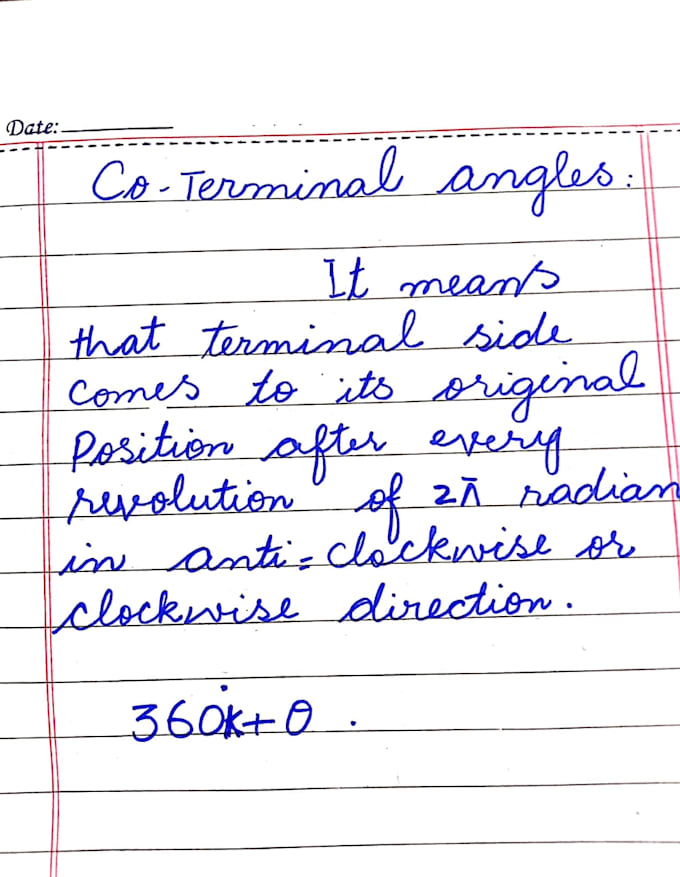 Date:
Co-Terminal angles:
It means
that terminal side
comes to its original
Position after every
revolution of 2π radian
in anti=clockwise or
clockwise direction.
360°k+θ.